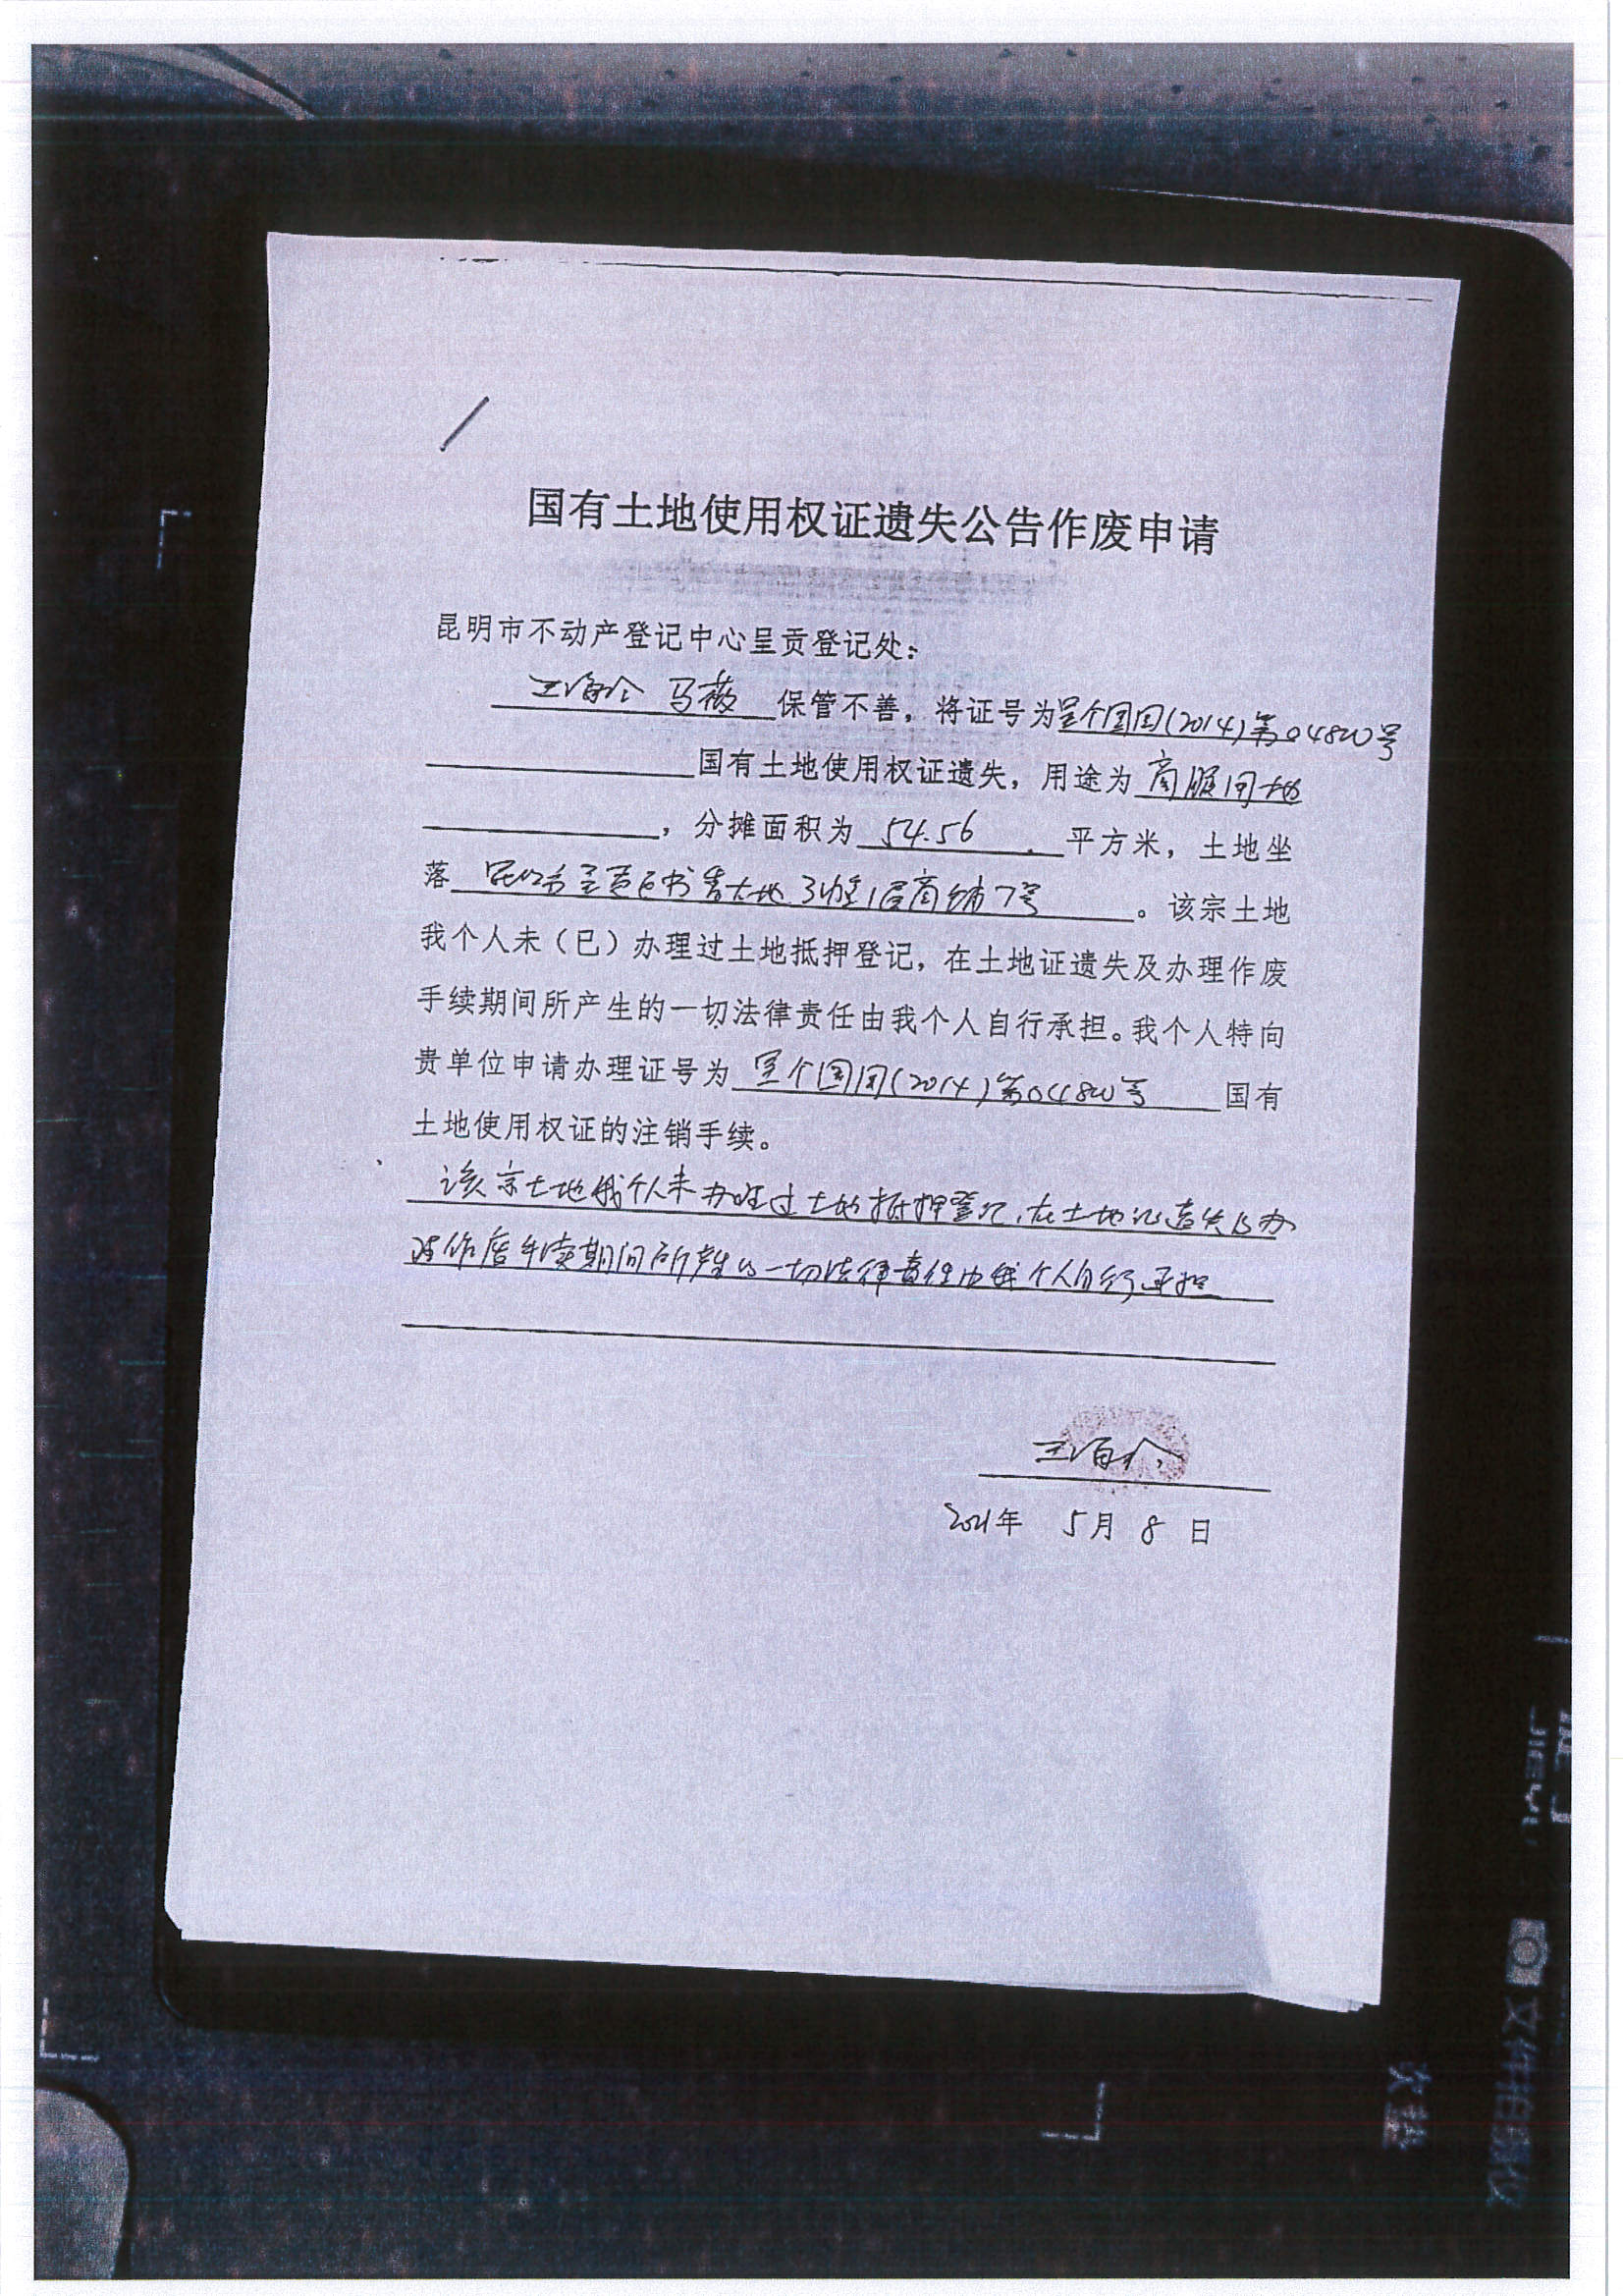 国有土地使用权证遗失公告作废申请
昆明市不动产登记中心呈贡登记处：
马薇 保管不善，将证号为呈个国用(2014)第04820号
国有土地使用权证遗失，用途为 商服用地
，分摊面积为 54.56 平方米，土地坐
落 昆明市呈贡区书香大地 3幢1层商铺7号 。该宗土地
我个人未（已）办理过土地抵押登记，在土地证遗失及办理作废
手续期间所产生的一切法律责任由我个人自行承担。我个人特向
贵单位申请办理证号为 呈个国用(2014)第04820号 国有
土地使用权证的注销手续。
该宗土地我个人未办理过土地抵押登记，在土地证遗失及办
理作废手续期间所产生的一切法律责任由我个人自行承担
2021年 5月 8 日
文件拍摄仪